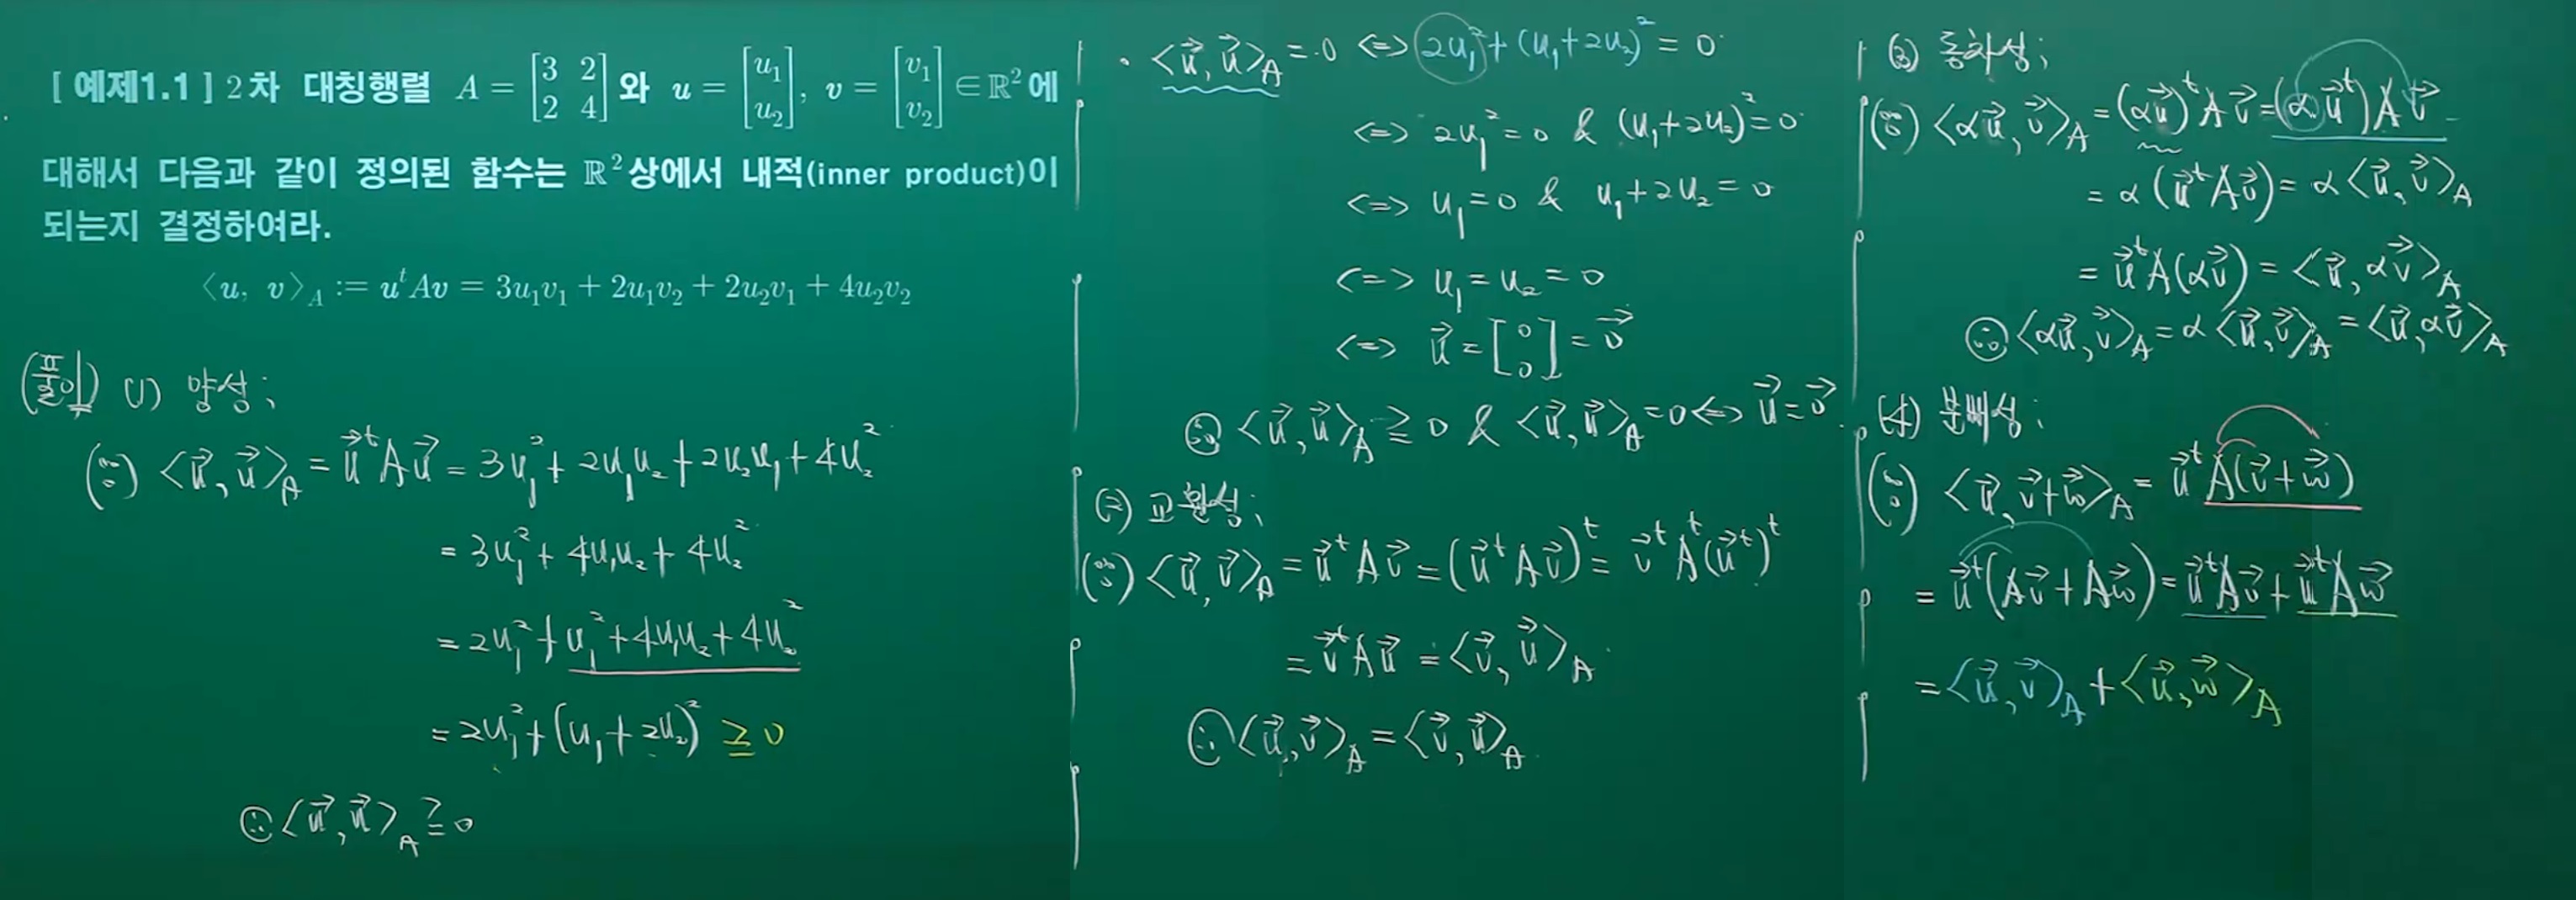 [ 예제1.1 ] 2차 대칭행렬 A = [3 2; 2 4] 와 u = [u₁; u₂], v = [v₁; v₂] ∈ ℝ² 에
대해서 다음과 같이 정의된 함수는 ℝ² 상에서 내적(inner product)이
되는지 결정하여라.
⟨u, v⟩_A := uᵗAv = 3u₁v₁ + 2u₁v₂ + 2u₂v₁ + 4u₂v₂
(풀이) (1) 양성;
(∵) ⟨u⃗, u⃗⟩_A = u⃗ᵗAu⃗ = 3u₁² + 2u₁u₂ + 2u₂u₁ + 4u₂²
= 3u₁² + 4u₁u₂ + 4u₂²
= 2u₁² + u₁² + 4u₁u₂ + 4u₂²
= 2u₁² + (u₁ + 2u₂)² ≥ 0
∴ ⟨u⃗, u⃗⟩_A ≥ 0
· ⟨u⃗, u⃗⟩_A = 0 ⟺ 2u₁² + (u₁ + 2u₂)² = 0
⟺ 2u₁² = 0 & (u₁ + 2u₂)² = 0
⟺ u₁ = 0 & u₁ + 2u₂ = 0
⟺ u₁ = u₂ = 0
⟺ u⃗ = [0; 0] = 0⃗
∴ ⟨u⃗, u⃗⟩_A ≥ 0 & ⟨u⃗, u⃗⟩_A = 0 ⟺ u⃗ = 0⃗
(2) 교환성;
(∵) ⟨u⃗, v⃗⟩_A = u⃗ᵗAv⃗ = (u⃗ᵗAv⃗)ᵗ = v⃗ᵗAᵗ(u⃗ᵗ)ᵗ
= v⃗ᵗAu⃗ = ⟨v⃗, u⃗⟩_A
∴ ⟨u⃗, v⃗⟩_A = ⟨v⃗, u⃗⟩_A
(3) 동차성;
(∵) ⟨αu⃗, v⃗⟩_A = (αu⃗)ᵗAv⃗ = (αu⃗ᵗ)Av⃗
= α(u⃗ᵗAv⃗) = α⟨u⃗, v⃗⟩_A
= u⃗ᵗA(αv⃗) = ⟨u⃗, αv⃗⟩_A
∴ ⟨αu⃗, v⃗⟩_A = α⟨u⃗, v⃗⟩_A = ⟨u⃗, αv⃗⟩_A
(4) 분배성;
(∵) ⟨u⃗, v⃗+w⃗⟩_A = u⃗ᵗA(v⃗+w⃗)
= u⃗ᵗ(Av⃗ + Aw⃗) = u⃗ᵗAv⃗ + u⃗ᵗAw⃗
= ⟨u⃗, v⃗⟩_A + ⟨u⃗, w⃗⟩_A